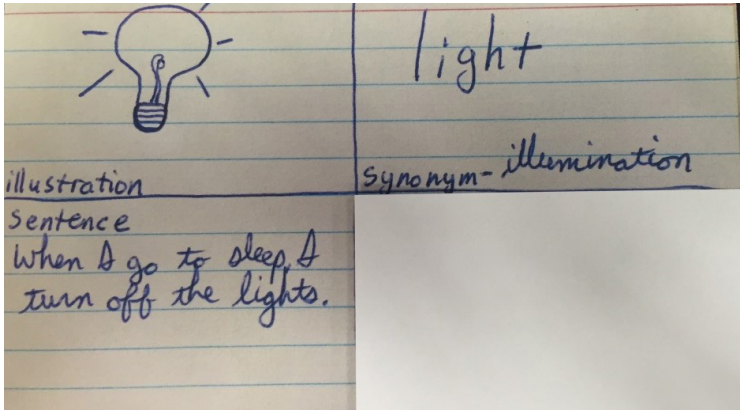 light
illustration
synonym- illumination
Sentence
When I go to sleep, I
turn off the lights.